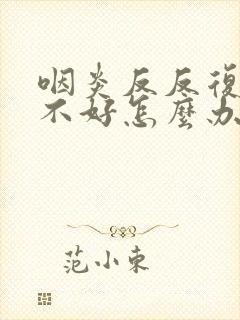 咽炎反反復
不好怎麼办
范小東